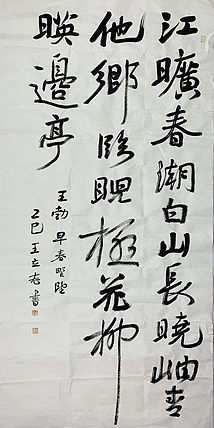 江曠春潮白山長曉岫青
他鄉臨眺極花柳
暎邊亭
王勃 早春野望
乙巳 王立志書